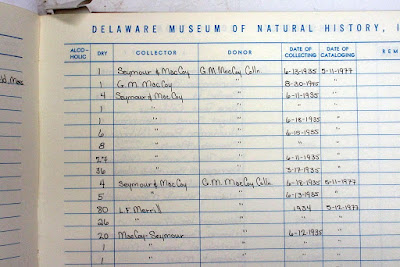 DELAWARE MUSEUM OF NATURAL HISTORY, I
ALCO-HOLIC DRY COLLECTOR DONOR DATE OF COLLECTING DATE OF CATALOGING REM
1 Seymour & MacCoy G.M. MacCoy Colln. 6-13-1935 5-11-1977
1 G.M. MacCoy " 8-30-1945 "
4 Seymour & MacCoy " 6-11-1935 "
1 " " "
1 " " 6-18-1935 "
6 " " 6-15-1935 "
8 " " " "
27 " " 6-11-1935 "
36 " " 3-17-1935 "
4 Seymour & MacCoy G.M. MacCoy Colln. 6-18-1935 5-11-1977
5 " " 6-13-1935 "
80 L.F. Merrill " 1934 5-12-1977
26 " " " "
20 MacCoy-Seymour " 6-12-1935 "
1 " " " "
1 " " " "